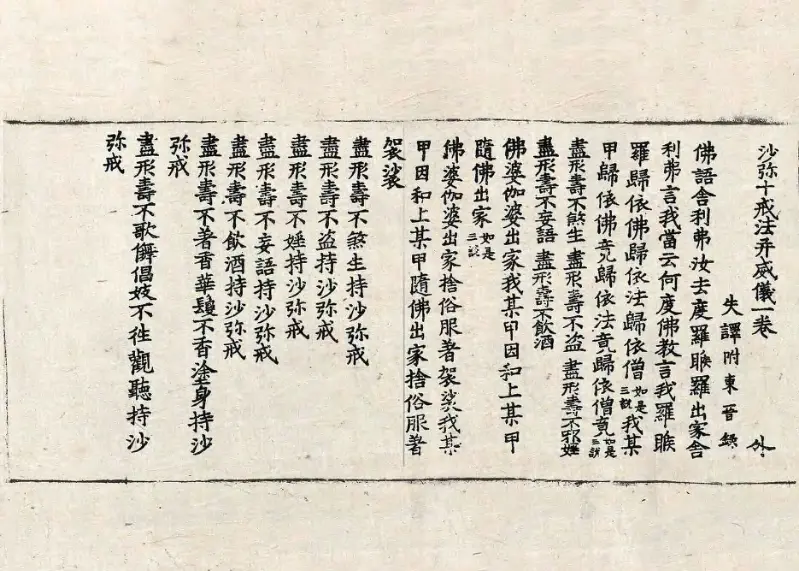 沙弥十戒法并威儀一卷 外
失譯附東晉録
佛語舎利弗汝去度羅睺羅出家舎
利弗言我當云何度佛教言我羅睺
羅歸依佛歸依法歸依僧如是三說我某
甲歸依佛竟歸依法竟歸依僧竟如是三說
盡形壽不煞生盡形壽不盗盡形壽不邪婬
盡形壽不妄語盡形壽不飲酒
佛婆伽婆出家我某甲因和上某甲
隨佛出家如是三說
佛婆伽婆出家捨俗服著袈裟我某
甲因和上某甲隨佛出家捨俗服著
袈裟
盡形壽不煞生持沙弥戒
盡形壽不盗持沙弥戒
盡形壽不婬持沙弥戒
盡形壽不妄語持沙弥戒
盡形壽不飲酒持沙弥戒
盡形壽不著香華鬘不香塗身持沙
弥戒
盡形壽不歌儛倡妓不徃觀聽持沙
弥戒